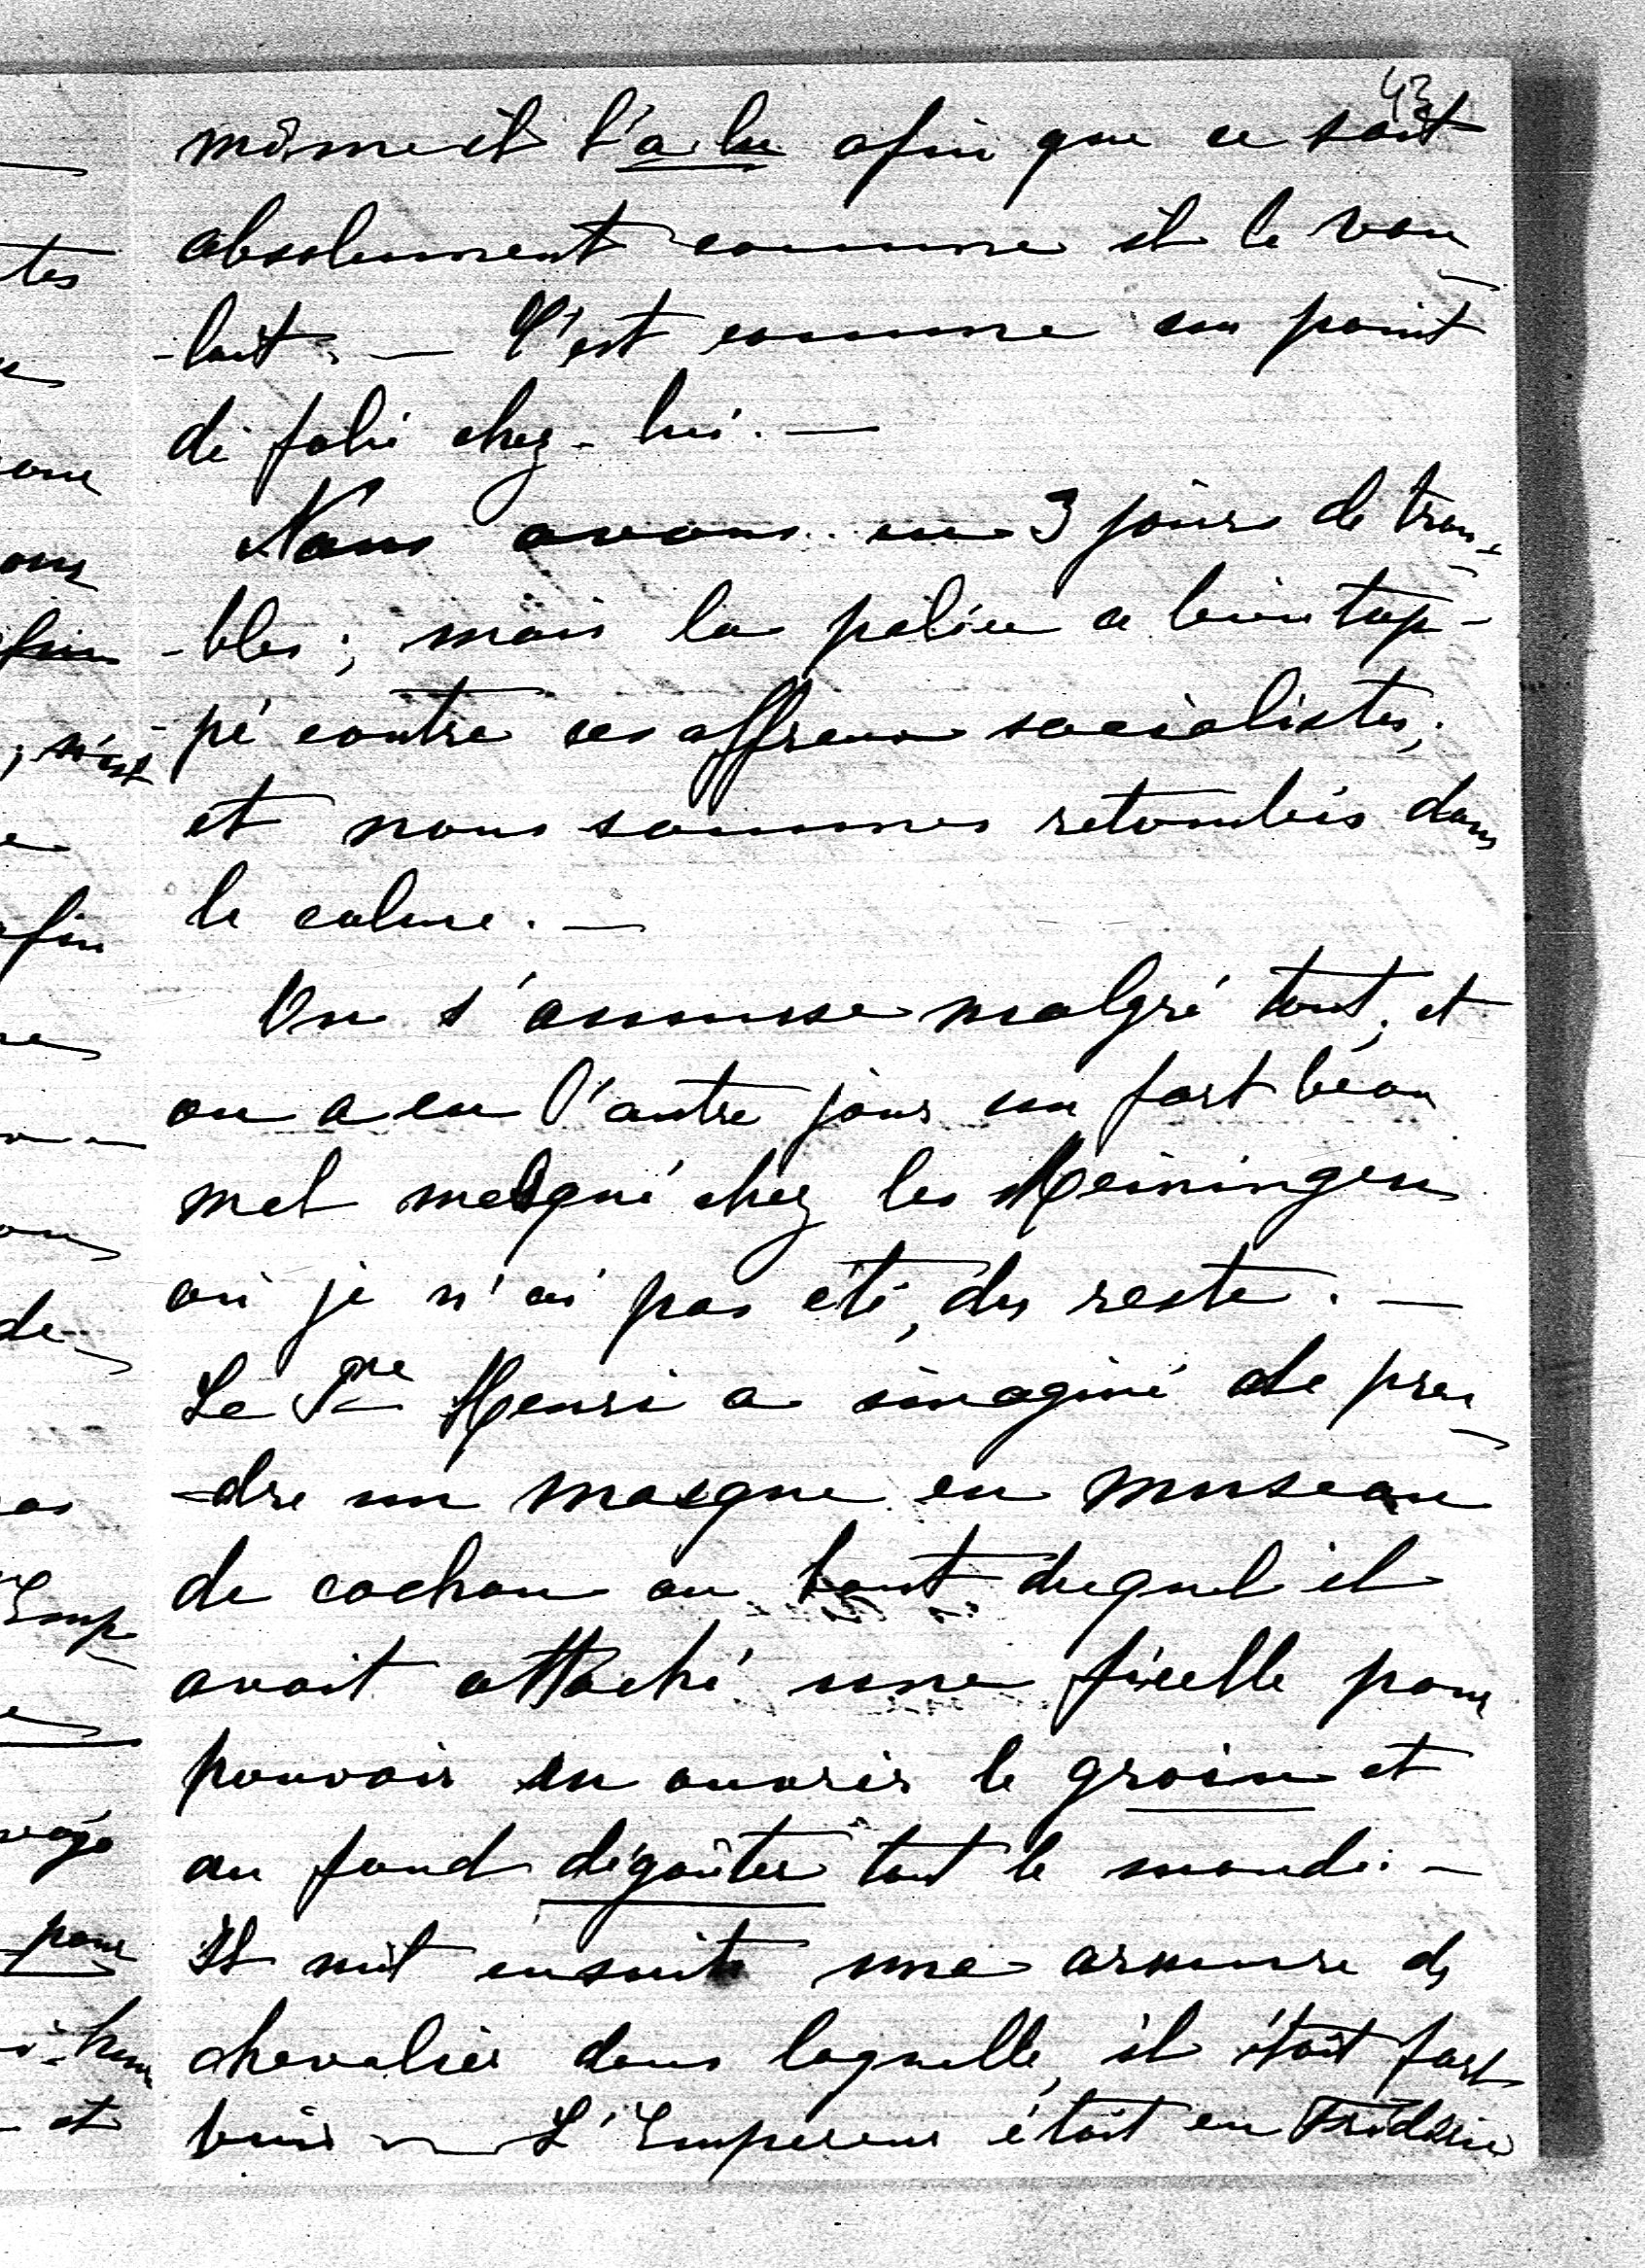 43
même il l'a lu afin que ce soit
absolument comme il le vou
-lait. — C'est comme un point
de folie chez-lui. —
Nous avons eu 3 jours de trou-
-bles; mais la police a bien tap-
pé contre ces affreux socialistes,
et nous sommes retombés dans
le calme. —
On s'amuse malgré tout, et
on a eu l'autre jour un fort beau
mel masqué chez les Meiningen
où je n'ai pas été, du reste. —
Le Pce Henri a imaginé de pren
-dre un masque en museau
de cochon au bout duquel il
avait attaché une ficelle pour
pouvoir en ouvrir le groin et
au fond dégoûter tout le monde. —
Il mit ensuite une armure de
chevalier dans laquelle, il était fort
bien — L'Empereur était en Frédéric